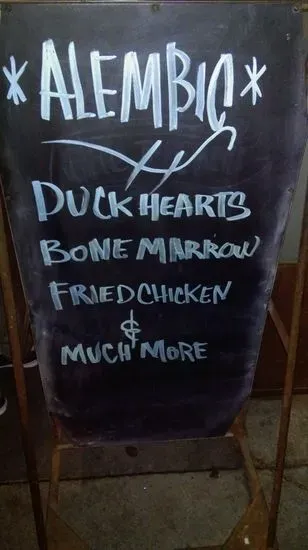 *ALEMBIC*
DUCK HEARTS
BONE MARROW
FRIED CHICKEN
&
MUCH MORE